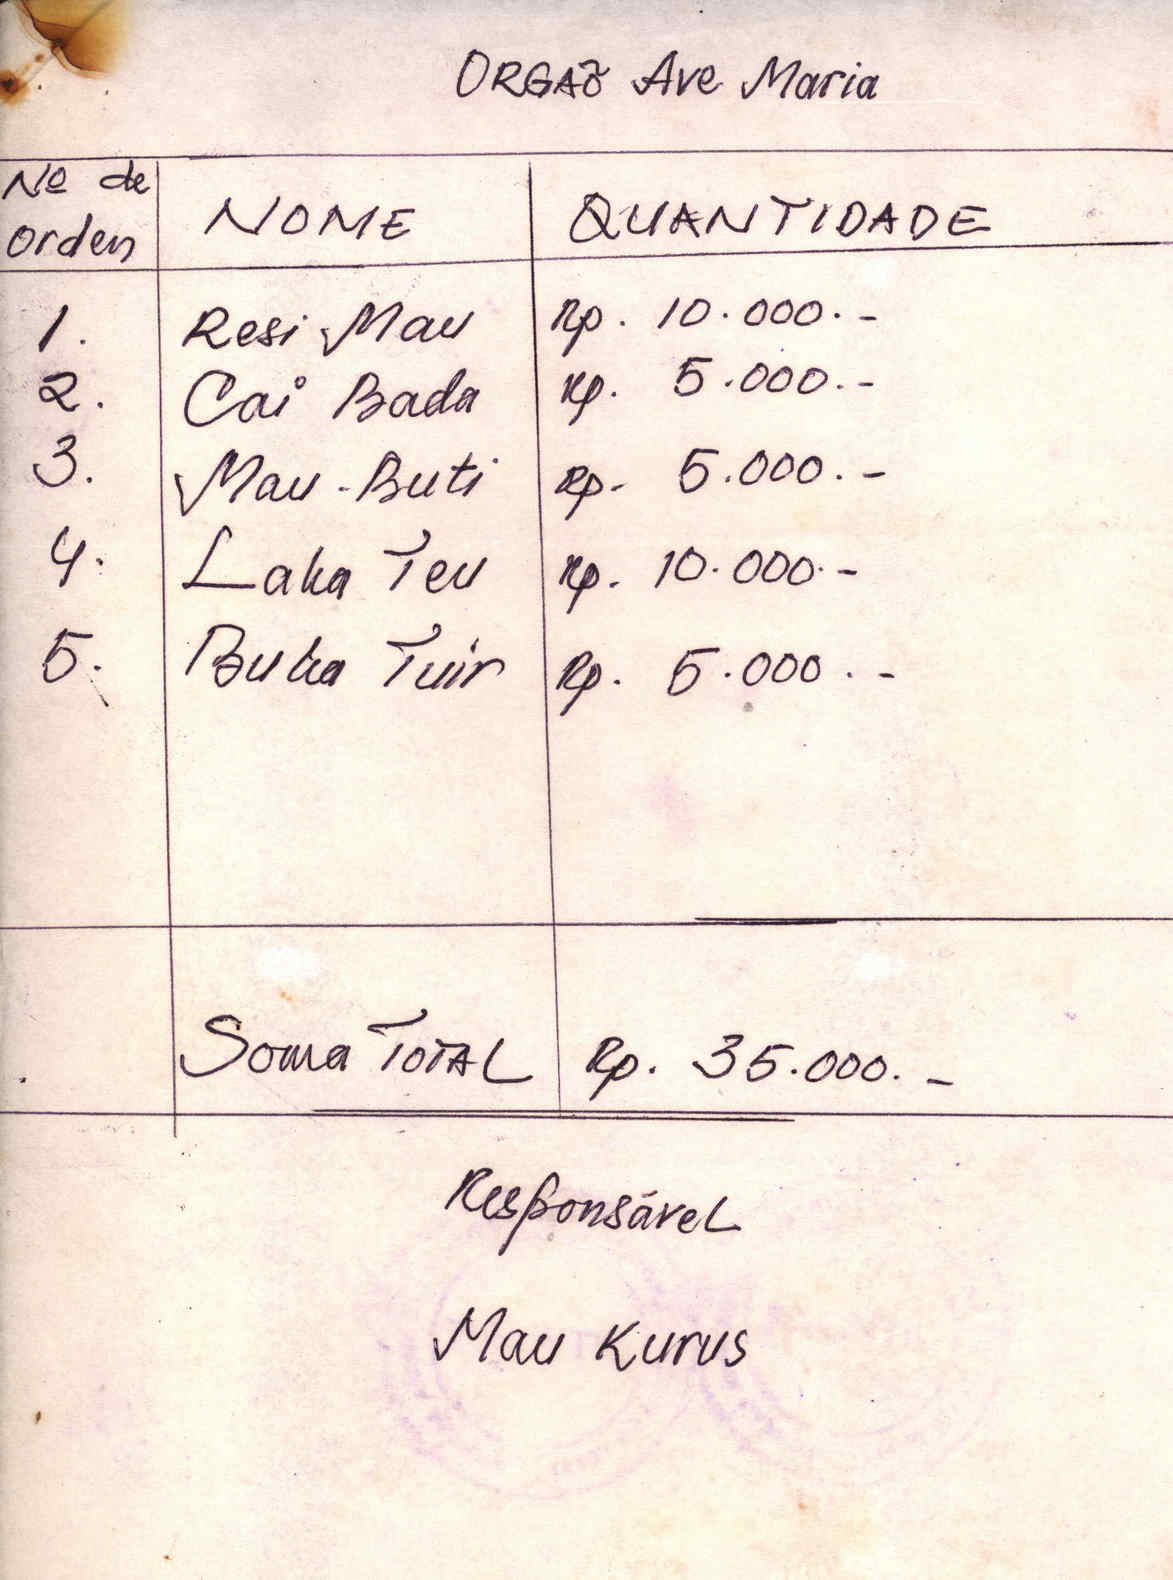 ORGAÕ Ave Maria
Nº de orden NOME QUANTIDADE
1. Resi Mau Rp. 10.000.-
2. Cai Bada Rp. 5.000.-
3. Mau-Buti Rp. 5.000.-
4. Laka Teu Rp. 10.000.-
5. Buka Tuir Rp. 5.000.-
Soma TOTAL Rp. 35.000.-
Responsável
Mau Kurus